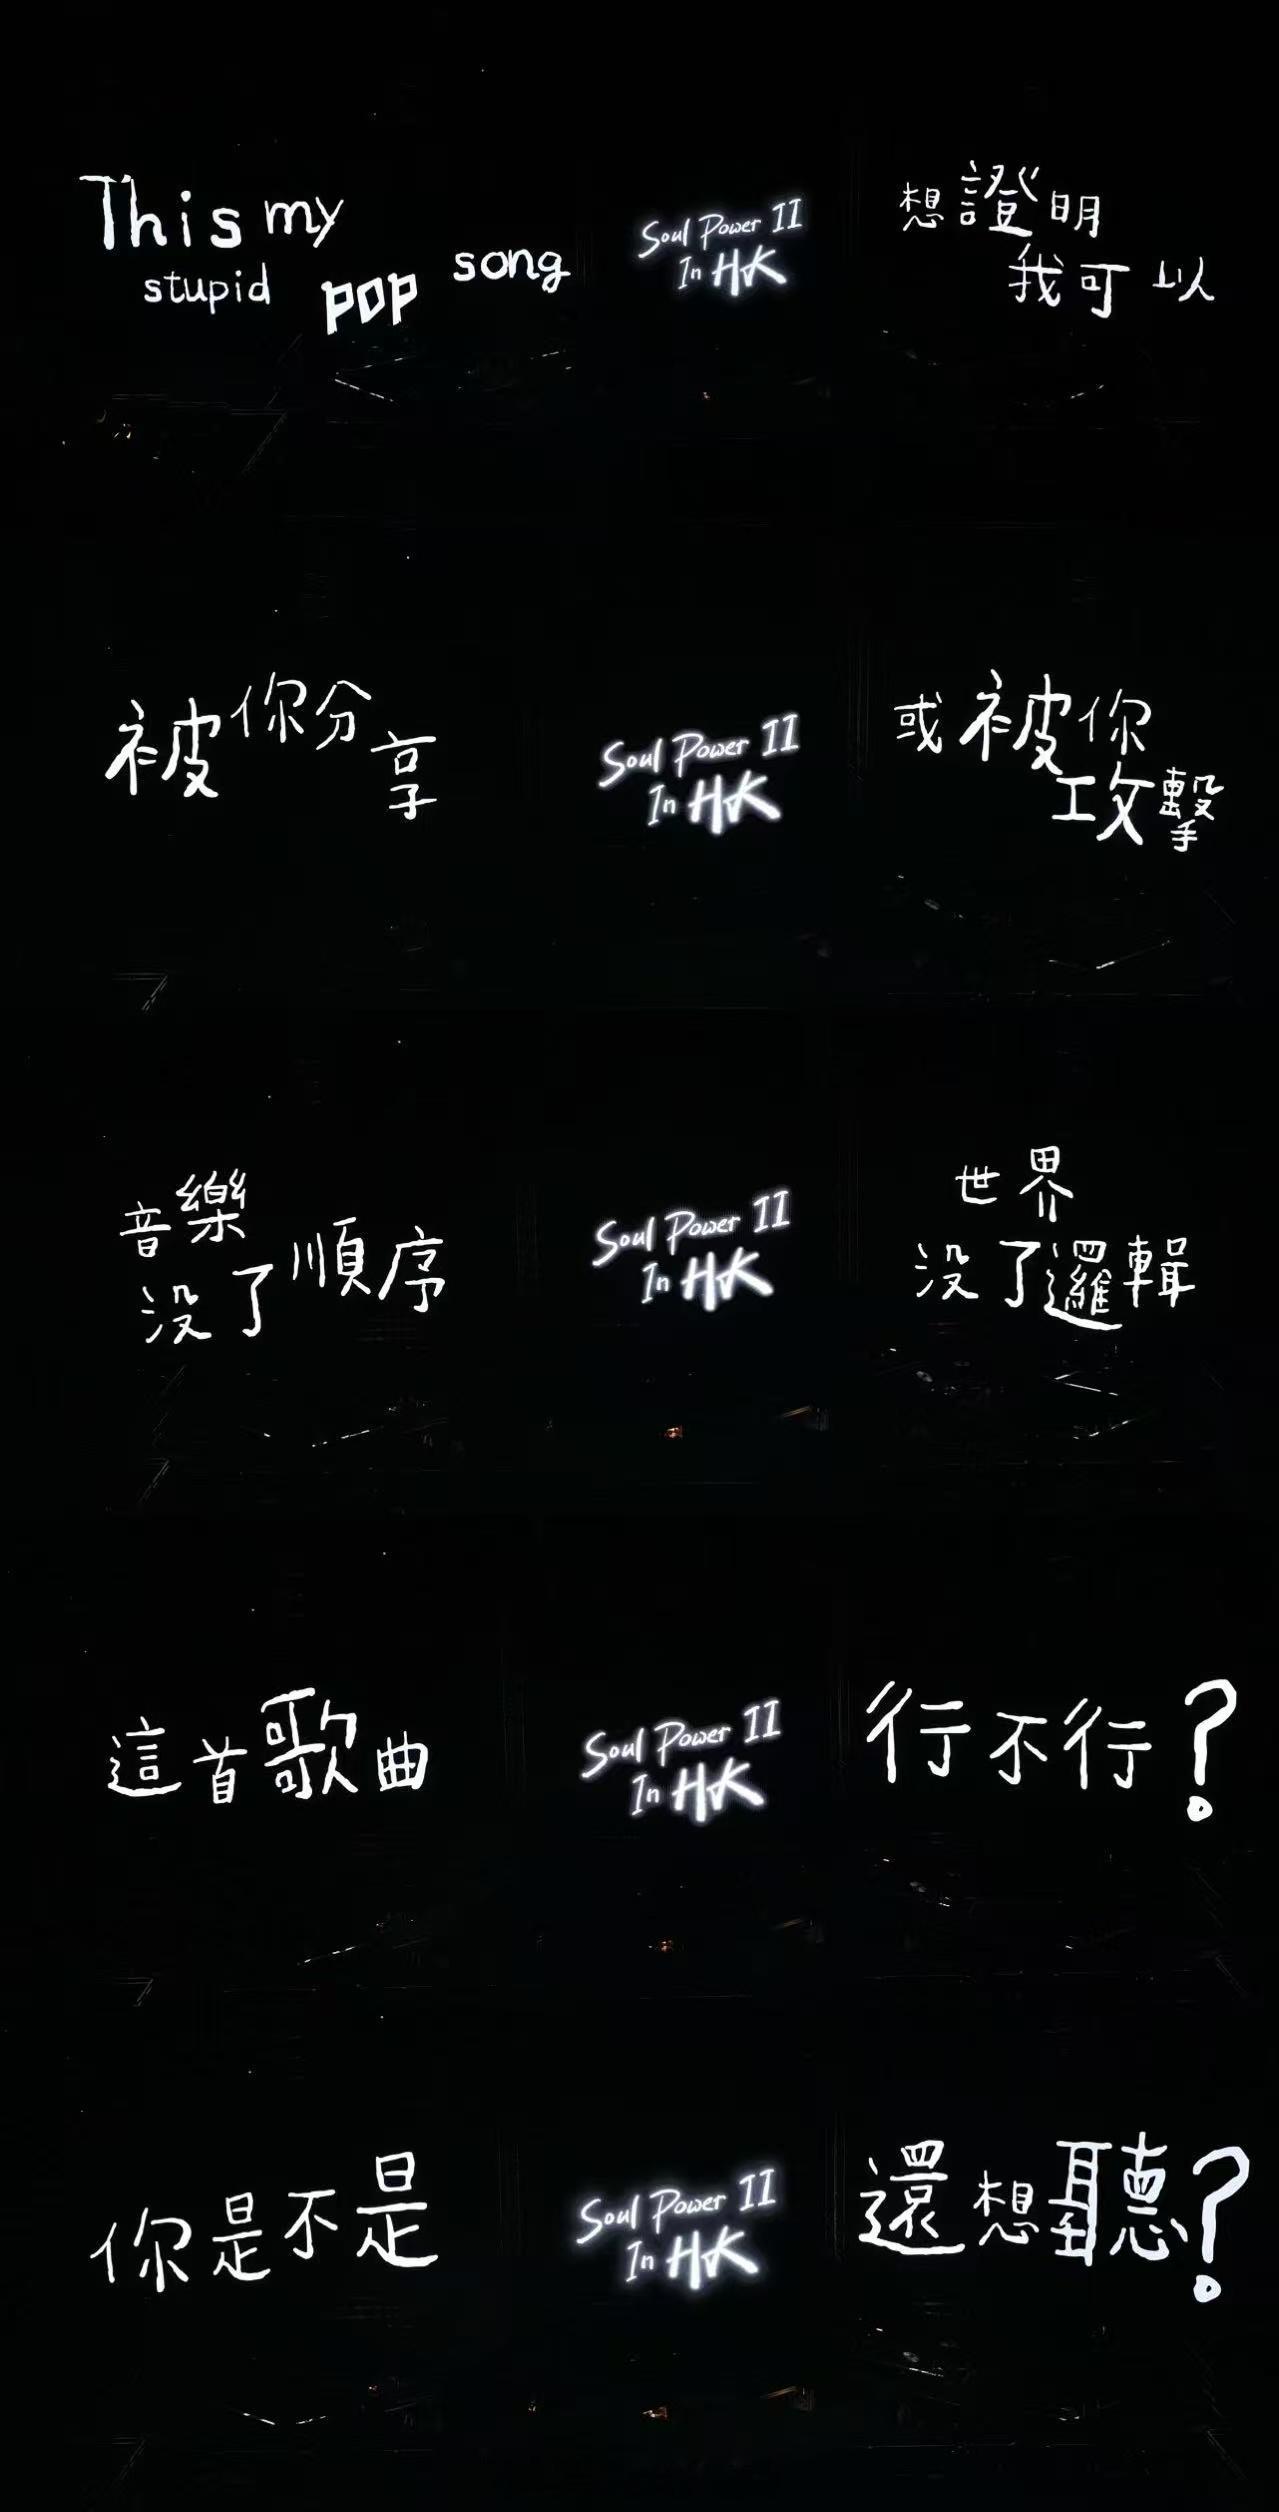 This my
stupid pop song
Soul Power II
In HK
想證明
我可以
被你分享
Soul Power II
In HK
或被你
攻擊
音樂
没了順序
Soul Power II
In HK
世界
没了邏輯
這首歌曲
Soul Power II
In HK
行不行？
你是不是
Soul Power II
In HK
還想聽？